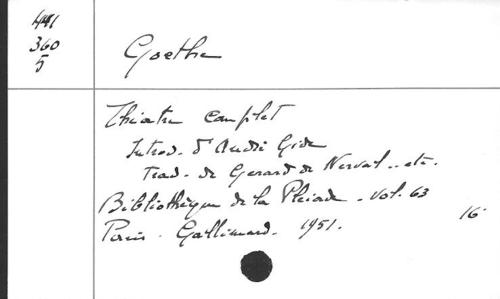 441
360
5
Goethe
Théatre complet
Introd. d'André Gide
Trad. de Gerard de Nerval .. etc.
Bibliothèque de la Pleiade - vol. 63
Paris. Gallimard. 1951. 16